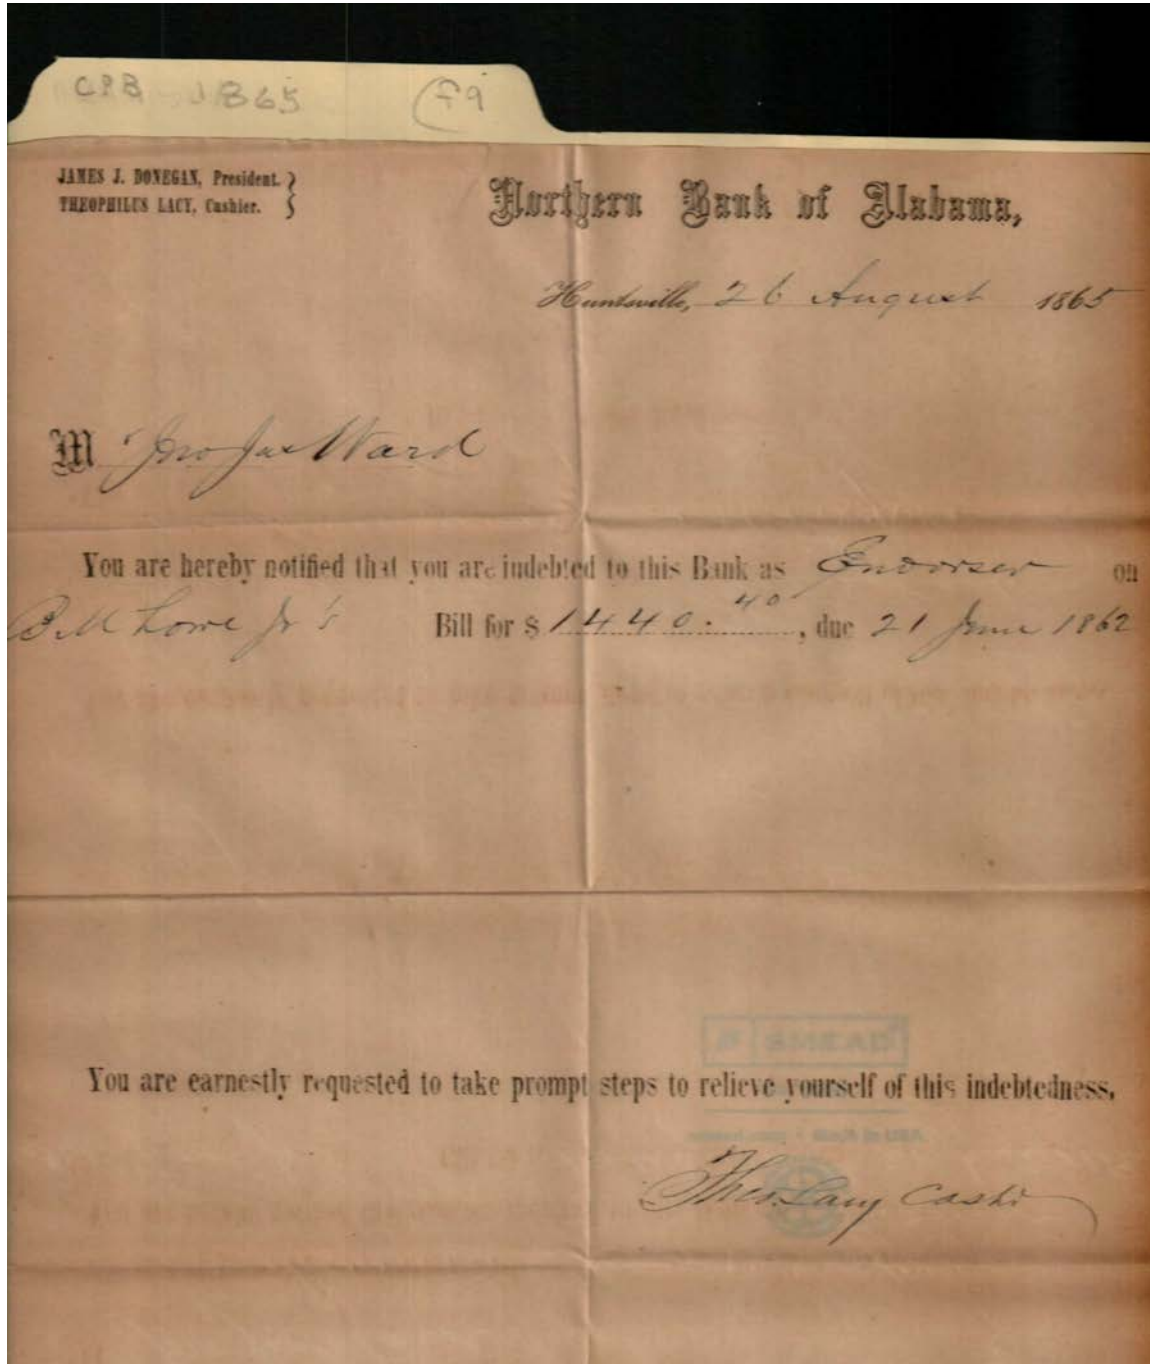 CPB 1865 (f9
JAMES J. DONEGAN, President. }
THEOPHILUS LACY, Cashier. }
Northern Bank of Alabama,
Huntsville, 26 August 1865
M Jno Jas Ward
You are hereby notified that you are indebted to this Bank as Endorser on
B M Lowe Jr's Bill for $ 1440.40, due 21 June 1862
SMEAD
You are earnestly requested to take prompt steps to relieve yourself of this indebtedness.
Made in USA
Theo. Lacy Cashr